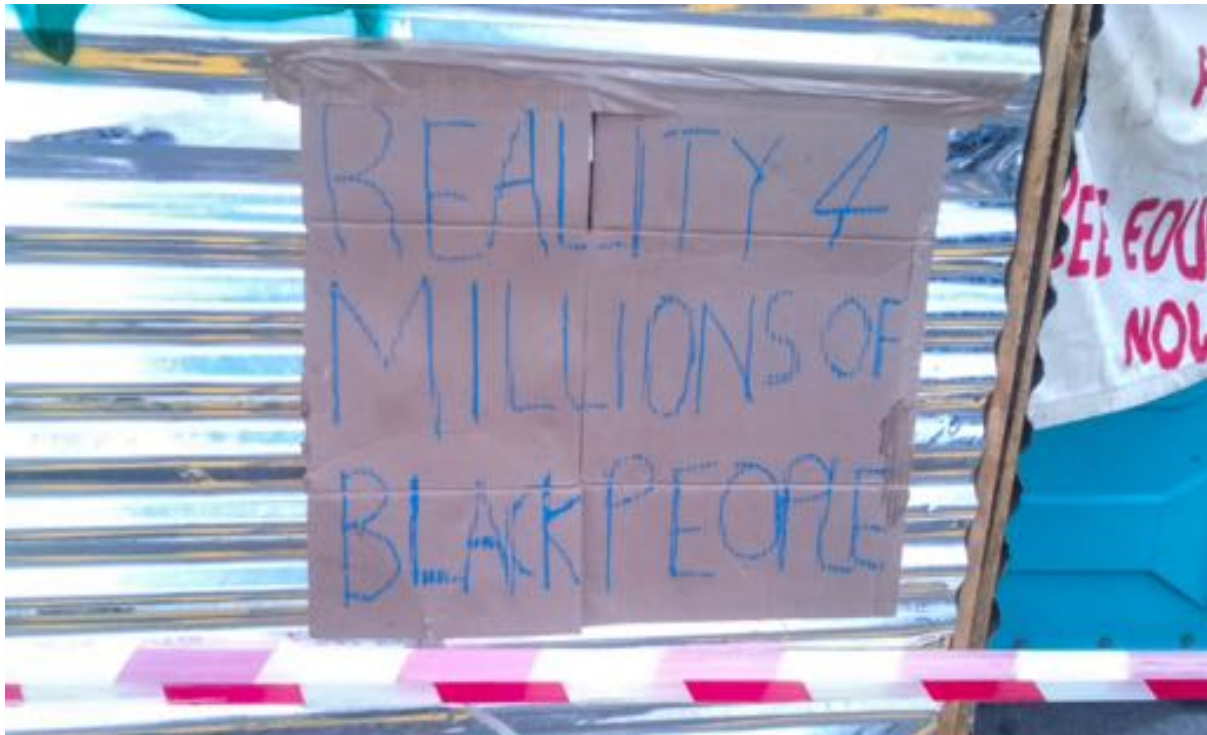 REALITY 4
MILLIONS OF
BLACK PEOPLE
NOW